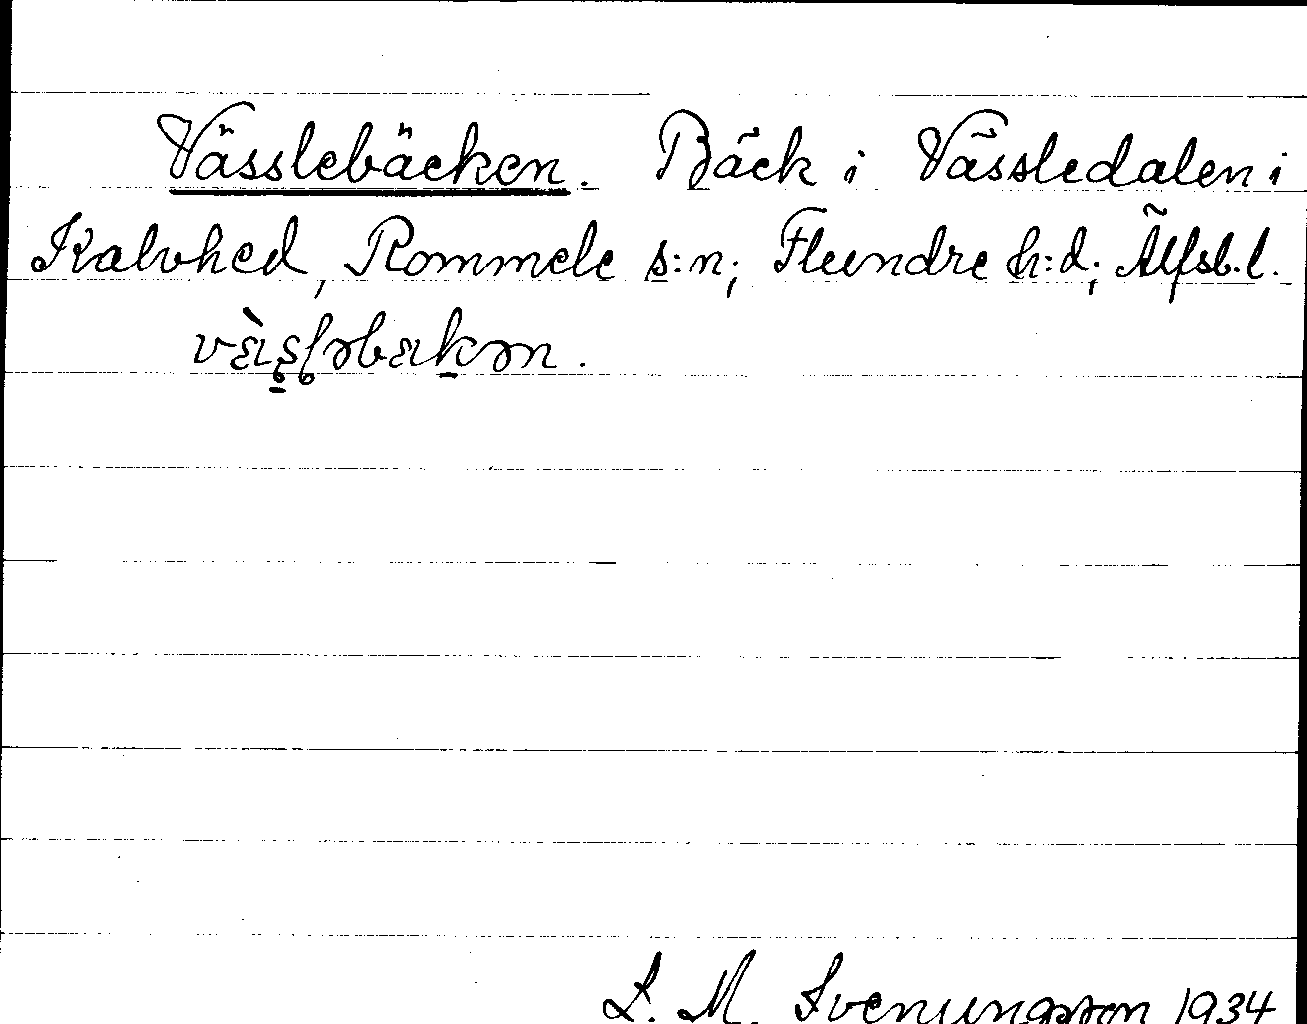 Vässlebäcken. Bäck i Vässledalen i
Kalvhed, Rommele s:n; Flundre h:d; Älfsb. l.
S. M. Svenungsson 1934